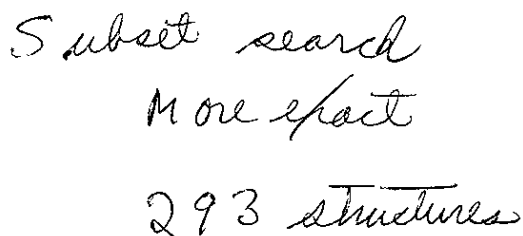 Subset search
More exact
293 structures